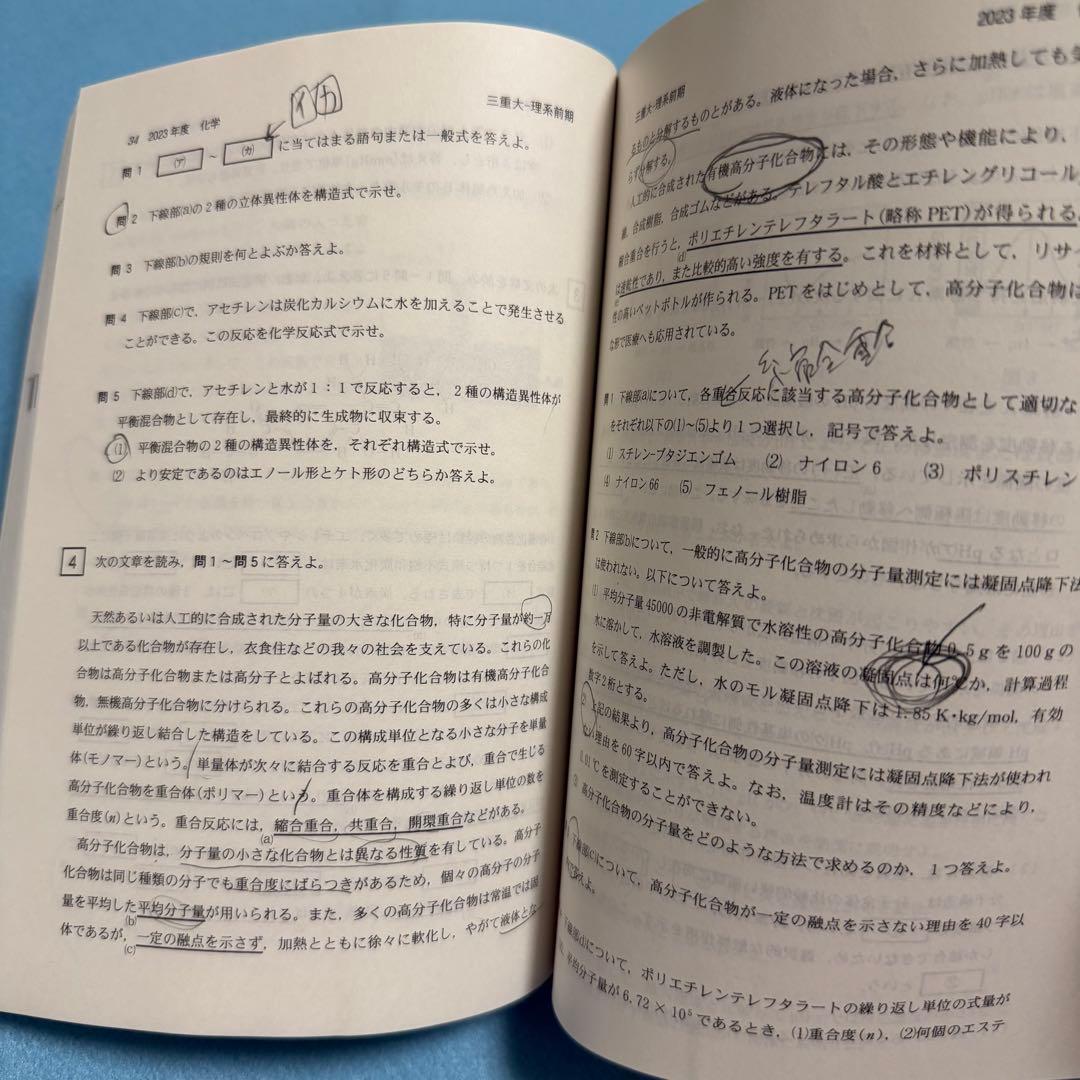 34 2023年度 化学
三重大-理系前期
問1 (ア) ~ (カ) に当てはまる語句または一般式を答えよ。
問2 下線部(a)の2種の立体異性体を構造式で示せ。
問3 下線部(b)の規則を何とよぶか答えよ。
問4 下線部(c)で，アセチレンは炭化カルシウムに水を加えることで発生させる
ことができる。この反応を化学反応式で示せ。
問5 下線部(d)で，アセチレンと水が1：1で反応すると，2種の構造異性体が
平衡混合物として存在し，最終的に生成物に収束する。
(1) 平衡混合物の2種の構造異性体を，それぞれ構造式で示せ。
(2) より安定であるのはエノール形とケト形のどちらか答えよ。
4 次の文章を読み，問1～問5に答えよ。
天然あるいは人工的に合成された分子量の大きな化合物，特に分子量が約一万
以上である化合物が存在し，衣食住などの我々の社会を支えている。これらの化
合物は高分子化合物または高分子とよばれる。高分子化合物は有機高分子化合
物，無機高分子化合物に分けられる。これらの高分子化合物の多くは小さな構成
単位が繰り返し結合した構造をしている。この構成単位となる小さな分子を単量
体(モノマー)という。単量体が次々に結合する反応を重合とよび，重合で生じる
高分子化合物を重合体(ポリマー)という。重合体を構成する繰り返し単位の数を
重合度(n)という。重合反応には，縮合重合，共重合，開環重合などがある。
(a)
高分子化合物は，分子量の小さな化合物とは異なる性質を有している。高分子
化合物は同じ種類の分子でも重合度にばらつきがあるため，個々の高分子の分子
量を平均した平均分子量が用いられる。また，多くの高分子化合物は常温では固
(b)
体であるが，一定の融点を示さず，加熱とともに徐々に軟化し，やがて液体とな
(c)
2023年度
三重大-理系前期
るものと分解するものとがある。液体になった場合，さらに加熱しても気
らず分解する。
人工的に合成された有機高分子化合物には，その形態や機能により，
維，合成樹脂，合成ゴムなどがある。テレフタル酸とエチレングリコール
縮合重合を行うと，ポリエチレンテレフタラート(略称PET)が得られる。
(d)
は速乾性であり，また比較的高い強度を有する。これを材料として，リサイ
性の高いペットボトルが作られる。PETをはじめとして，高分子化合物は
な形で医療へも応用されている。
問1 下線部(a)について，各重合反応に該当する高分子化合物として適切な
をそれぞれ以下の(1)～(5)より1つ選択し，記号で答えよ。
(1) スチレン-ブタジエンゴム (2) ナイロン6 (3) ポリスチレン
(4) ナイロン66 (5) フェノール樹脂
問2 下線部(b)について，一般的に高分子化合物の分子量測定には凝固点降下法
は使われない。以下について答えよ。
(1) 平均分子量45000の非電解質で水溶性の高分子化合物0.5gを100gの
水に溶かして，水溶液を調製した。この溶液の凝固点は何℃か，計算過程
を示して答えよ。ただし，水のモル凝固点降下は1.85K・kg/mol，有効
数字2桁とする。
(2) 上記の結果より，高分子化合物の分子量測定には凝固点降下法が使われ
ない理由を60字以内で答えよ。なお，温度計はその精度などにより，
0.01℃を測定することができない。
(3) 高分子化合物の分子量をどのような方法で求めるのか，1つ答えよ。
下線部(c)について，高分子化合物が一定の融点を示さない理由を40字以
内で答えよ。
下線部(d)について，ポリエチレンテレフタラートの繰り返し単位の式量が
平均分子量が6.72×10⁵であるとき，(1)重合度(n)，(2)何個のエステ